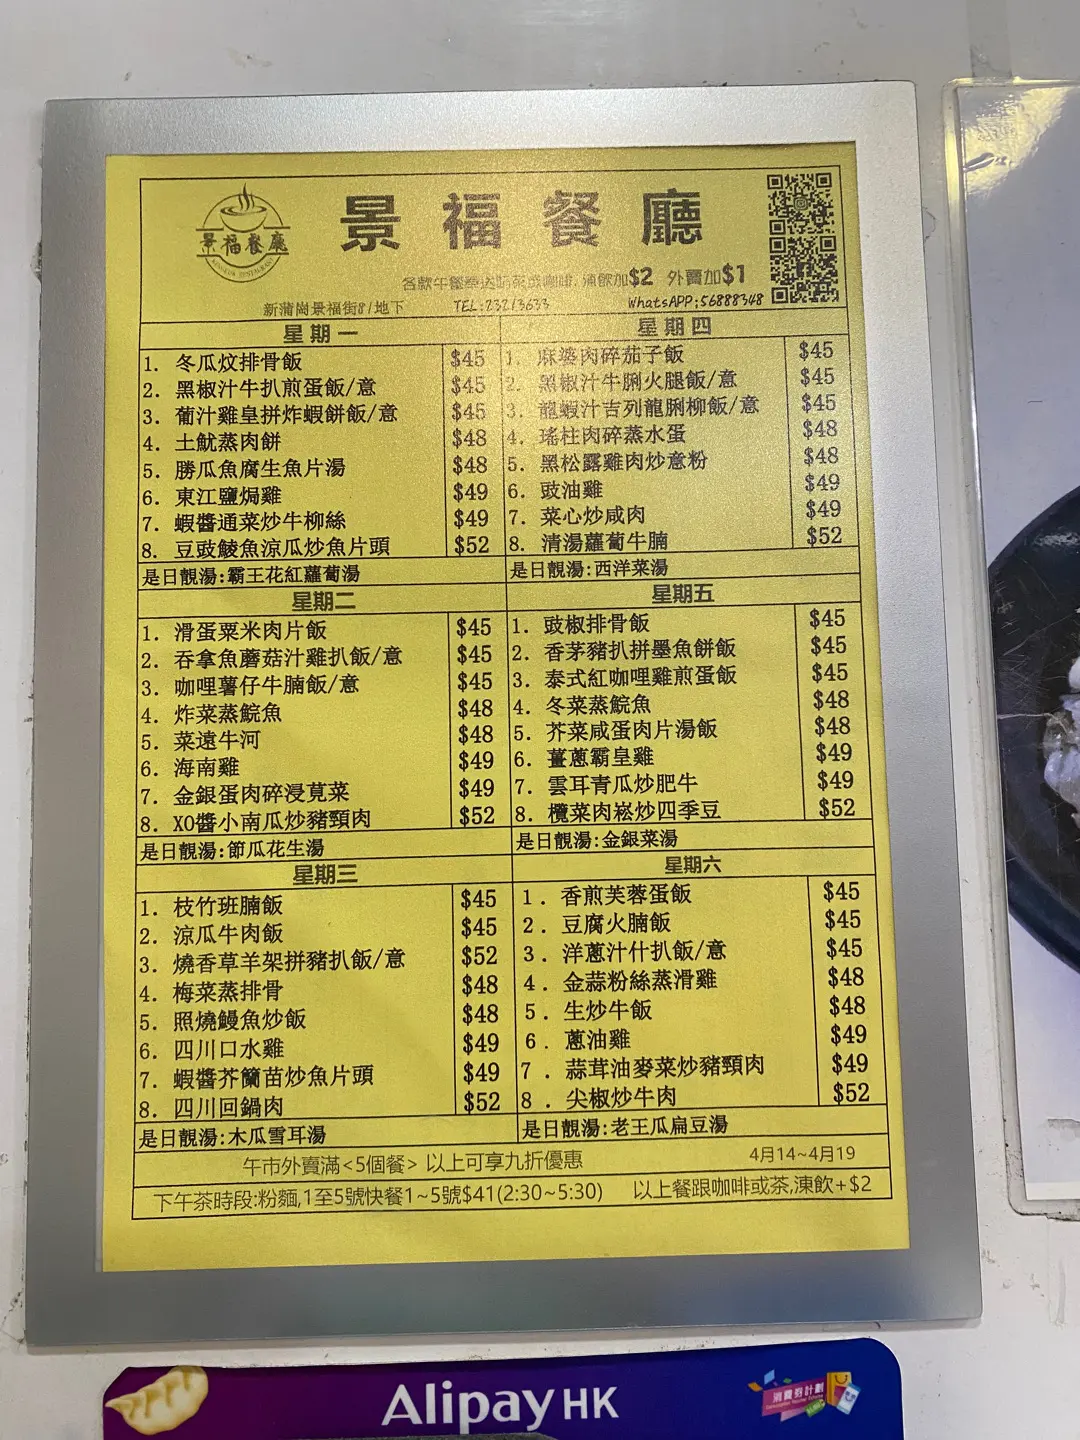 景福餐廳
景福餐廳
KINGFUK RESTAURANT
各款午餐奉送 咖啡, 凍飲加$2 外賣加$1
新蒲崗景福街87地下 TEL:23213633 WhatsAPP;56888348
星期一
1. 冬瓜炆排骨飯 $45
2. 黑椒汁牛扒煎蛋飯/意 $45
3. 葡汁雞皇拼炸蝦餅飯/意 $45
4. 土魷蒸肉餅 $48
5. 勝瓜魚腐生魚片湯 $48
6. 東江鹽焗雞 $49
7. 蝦醬通菜炒牛柳絲 $49
8. 豆豉鯪魚涼瓜炒魚片頭 $52
是日靚湯:霸王花紅蘿蔔湯
星期二
1. 滑蛋粟米肉片飯 $45
2. 吞拿魚蘑菇汁雞扒飯/意 $45
3. 咖哩薯仔牛腩飯/意 $45
4. 炸菜蒸鯇魚 $48
5. 菜遠牛河 $48
6. 海南雞 $49
7. 金銀蛋肉碎浸莧菜 $49
8. XO醬小南瓜炒豬頸肉 $52
是日靚湯:節瓜花生湯
星期三
1. 枝竹班腩飯 $45
2. 涼瓜牛肉飯 $45
3. 燒香草羊架拼豬扒飯/意 $52
4. 梅菜蒸排骨 $48
5. 照燒鰻魚炒飯 $48
6. 四川口水雞 $49
7. 蝦醬芥蘭苗炒魚片頭 $49
8. 四川回鍋肉 $52
是日靚湯:木瓜雪耳湯
星期四
1. 麻婆肉碎茄子飯 $45
2. 黑椒汁牛脷火腿飯/意 $45
3. 龍蝦汁吉列龍脷柳飯/意 $45
4. 瑤柱肉碎蒸水蛋 $48
5. 黑松露雞肉炒意粉 $48
6. 豉油雞 $49
7. 菜心炒咸肉 $49
8. 清湯蘿蔔牛腩 $52
是日靚湯:西洋菜湯
星期五
1. 豉椒排骨飯 $45
2. 香茅豬扒拼墨魚餅飯 $45
3. 泰式紅咖哩雞煎蛋飯 $45
4. 冬菜蒸鯇魚 $48
5. 芥菜咸蛋肉片湯飯 $48
6. 薑蔥霸皇雞 $49
7. 雲耳青瓜炒肥牛 $49
8. 欖菜肉崧炒四季豆 $52
是日靚湯:金銀菜湯
星期六
1. 香煎芙蓉蛋飯 $45
2. 豆腐火腩飯 $45
3. 洋蔥汁什扒飯/意 $45
4. 金蒜粉絲蒸滑雞 $48
5. 生炒牛飯 $48
6. 蔥油雞 $49
7. 蒜茸油麥菜炒豬頸肉 $49
8. 尖椒炒牛肉 $52
是日靚湯:老王瓜扁豆湯
午市外賣滿<5個餐> 以上可享九折優惠 4月14~4月19
下午茶時段:粉麵,1至5號快餐1~5號$41(2:30~5:30) 以上餐跟咖啡或茶,凍飲+$2
AlipayHK
消費券計劃